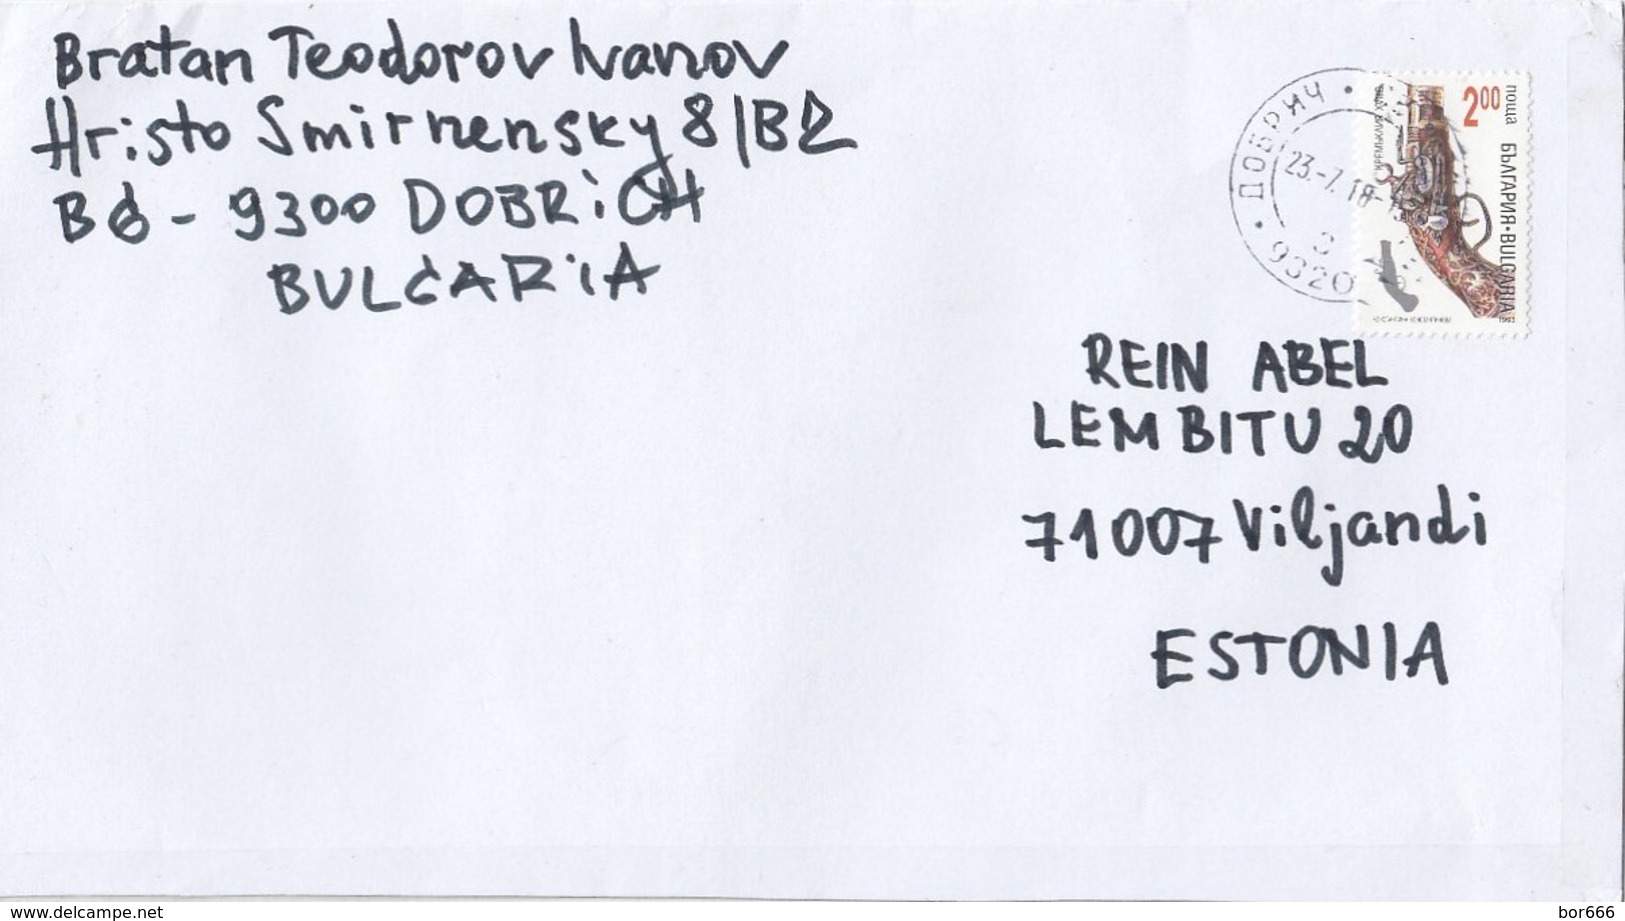 Bratan Teodorov Ivanov
Hristo Smirnensky 8/B2
BG - 9300 DOBRiCH
BULGARiA
ДОБРИЧ
23.-7.18-
3
9320
2⁰⁰
поща
БЪЛГАРИЯ • BULGARIA
1993
REIN ABEL
LEMBITU 20
71007 Viljandi
ESTONIA
www.delcampe.net
bor666